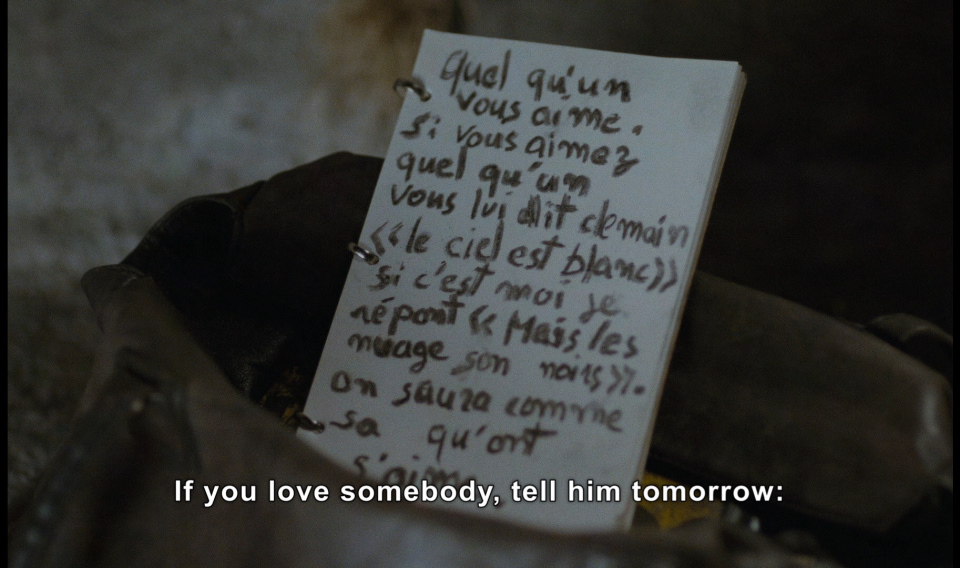 quel qu'un
vous aime.
si vous aimez
quel qu'un
vous lui dit demain
«le ciel est blanc»
si c'est moi je
répont « Mais les
nuage son noirs».
on saura comme
sa qu'ont
s'aime
If you love somebody, tell him tomorrow: